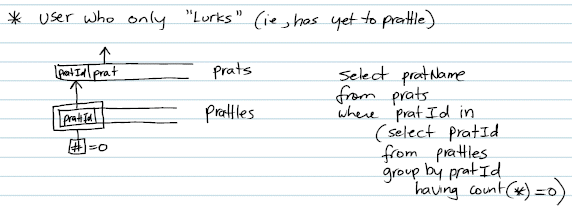 * User who only "Lurks" (ie, has yet to prattle)
pratId prat
prats
pratId
Prattles
# =0
select pratName
from prats
where pratId in
(select pratId
from prattles
group by pratId
having count(*) =0)